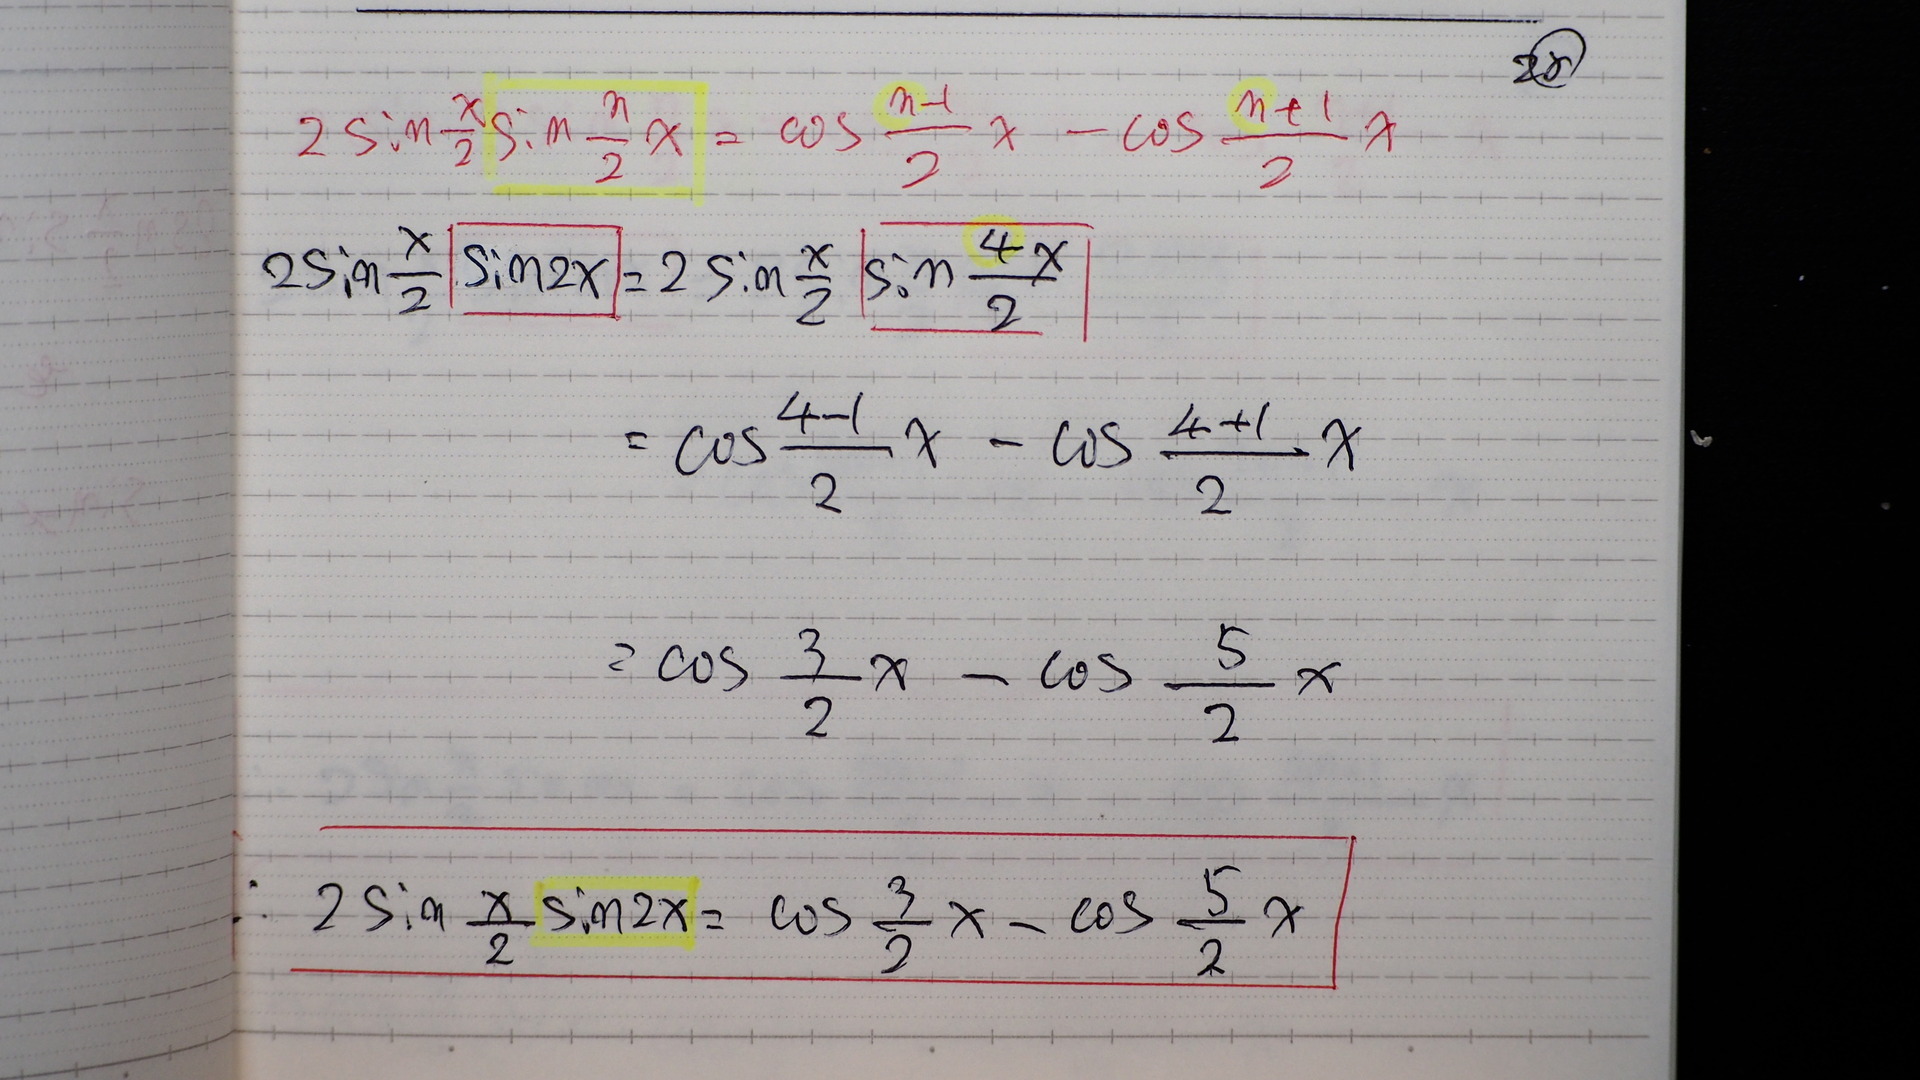 2x
2 sin x/2 sin n/2 x = cos n-1/2 x - cos n+1/2 x
2 sin x/2 sin2x = 2 sin x/2 sin 4x/2
= cos 4-1/2 x - cos 4+1/2 x
= cos 3/2 x - cos 5/2 x
∴ 2 sin x/2 sin2x = cos 3/2 x - cos 5/2 x